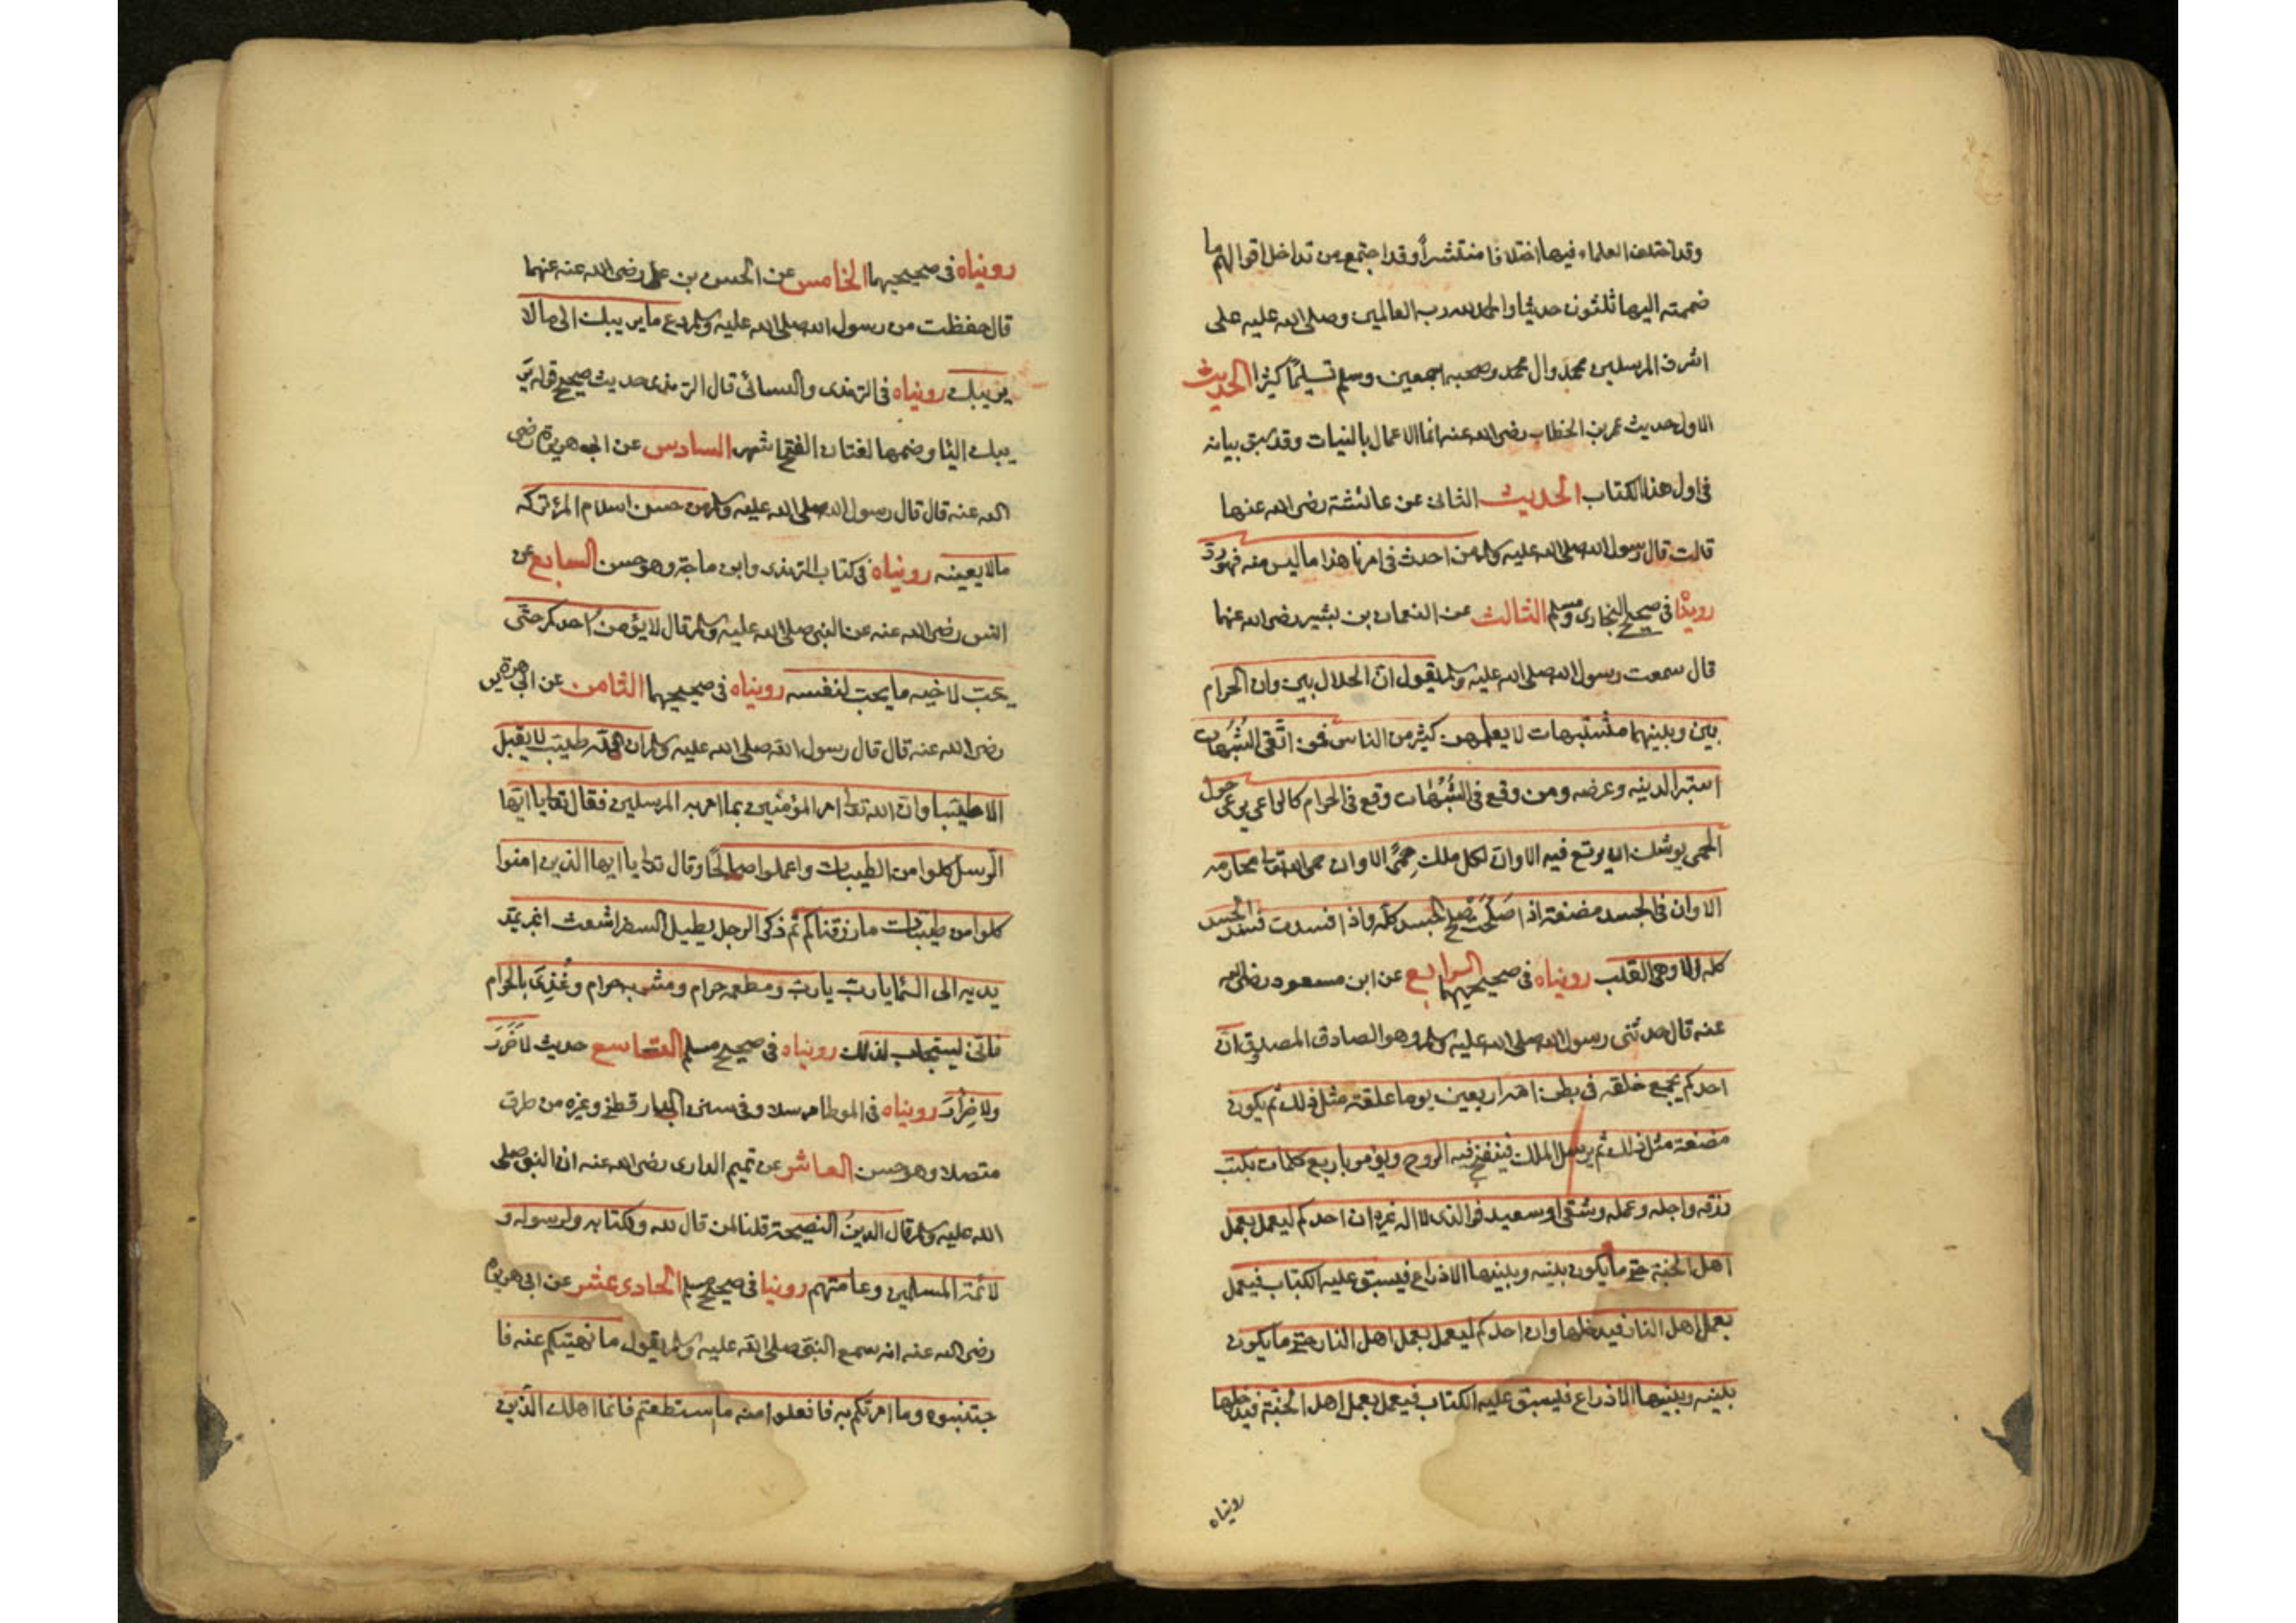 وقد اختلف العلماء فيها اختلافا منتشراً وقد اجتمع من تداخل اقوالهم ما
ضممته اليها ثلثون حديثا والحمد لله رب العالمين وصلى الله عليه على
اشرف المرسلين محمد وال محمد وصحبه اجمعين وسلم تسليمًا كثيرا الحديث
الاول حديث عمر بن الخطاب رضى الله عنه انما الاعمال بالنيات وقد سبق بيانه
فى اول هذا الكتاب الحديث الثانى عن عائشة رضى الله عنها
قالت قال رسول الله صلى الله عليه وسلم من احدث فى امرنا هذا ما ليس منه فهو ردّ
روينا فى صحيح البخارى ومسلم الثالث عن النعمان بن بشير رضى الله عنهما
قال سمعت رسول الله صلى الله عليه وسلم يقول انّ الحلال بين وان الحرام
بين وبينهما مشتبهات لا يعلمهن كثير من الناس فمن اتّقى الشُّبُهات
استبرا لدينه وعرضه ومن وقع فى الشُّبُهات وقع فى الحرام كالراعى يرعى حول
الحمى يوشك ان يرتع فيه الا وانّ لكل ملك حِمًى الا وان حمى الله تعالى محارمه
الا وان فى الجسد مضغة اذا صَلَحَت صلح الجسد كلّه واذا افسدت فسد الجسد
كله الا وهى القلب رويناه فى صحيحيهما الرابع عن ابن مسعود رضى الله
عنه قال حدثنى رسول الله صلى الله عليه وسلم وهو الصادق المصدوق انّ
احدكم يجمع خلقه فى بطن امه اربعين يوما علقة مثل ذلك ثم يكون
مضغة مثل ذلك ثم يرسل الملك فينفخ فيه الروح ويؤمر باربع كلمات بكتب
رزقه واجله وعمله وشقى او سعيد فوالذى لا اله غيره ان احدكم ليعمل بعمل
اهل الجنة حتى ما يكون بينه وبينها الا ذراع فيسبق عليه الكتاب فيعمل
بعمل اهل النار فيدخلها وان احدكم ليعمل بعمل اهل النار حتى ما يكون
بينه وبينها الا ذراع فيسبق عليه الكتاب فيعمل بعمل اهل الجنّة فيدخلها
رويناه
رويناه فى صحيحيهما الخامس عن الحسن بن على رضى الله عنه عنهما
قال حفظت من رسول الله صلى الله عليه وسلم دع ما يريبك الى ما لا
يريبك رويناه فى الترمذى والنسائى قال الترمذى حديث صحيح قوله يَرِ
يبك اليا وضمها لغتان الفتح اشهر السادس عن ابى هريرة رضى
الله عنه قال قال رسول الله صلى الله عليه وسلم من حسن اسلام المرء تركه
مالا يعينه رويناه فى كتاب الترمذى وابن ماجة وهو حسن السابع عن
انس رضى الله عنه عن النبى صلى الله عليه وسلم قال لا يؤمنُ احدكم حتّى
يحبّ لاخيه ما يحب لنفسه رويناه فى صحيحيهما الثامن عن ابى هريرة
رضى الله عنه قال قال رسول الله صلى الله عليه وسلم ان الله طيّب لا يقبل
الا طيّبا وانّ الله تعالى امر المؤمنين بما امر به المرسلين فقال تعالى يا ايّها
الرّسل كلوا من الطيبات واعملوا صالحًا وقال تعالى يا ايها الذين امنوا
كلوا من طيّبات ما رزقناكم ثم ذكر الرجل يطيل السفر اشعث اغبر يمدّ
يديه الى السّما يا ربّ يا ربّ ومطعمه حرام ومشربه حرام وغُذِىَ بالحرام
فانّى يستجاب لذلك رويناه فى صحيح مسلم التاسع حديث لا ضَرَرَ
ولا ضِرَارَ رويناه فى الموطا مرسلا وفى سنن الدارقطنى وغيره من طرق
متصلا وهو حسن العاشر عن تميم الدارى رضى الله عنه ان النبى صلى
الله عليه وسلم قال الدينُ النصيحة قلنا لمن قال لله ولكتابه ولرسوله و
لائمة المسلمين وعامتهم روينا فى صحيح مسلم الحادى عشر عن ابى هريرة
رضى الله عنه انه سمع النبىّ صلى الله عليه وسلم يقول ما نهيتكم عنه فا
جتنبوه وما امرتكم به فافعلوا منه ما ستطعتم فانما اهلك الّذين